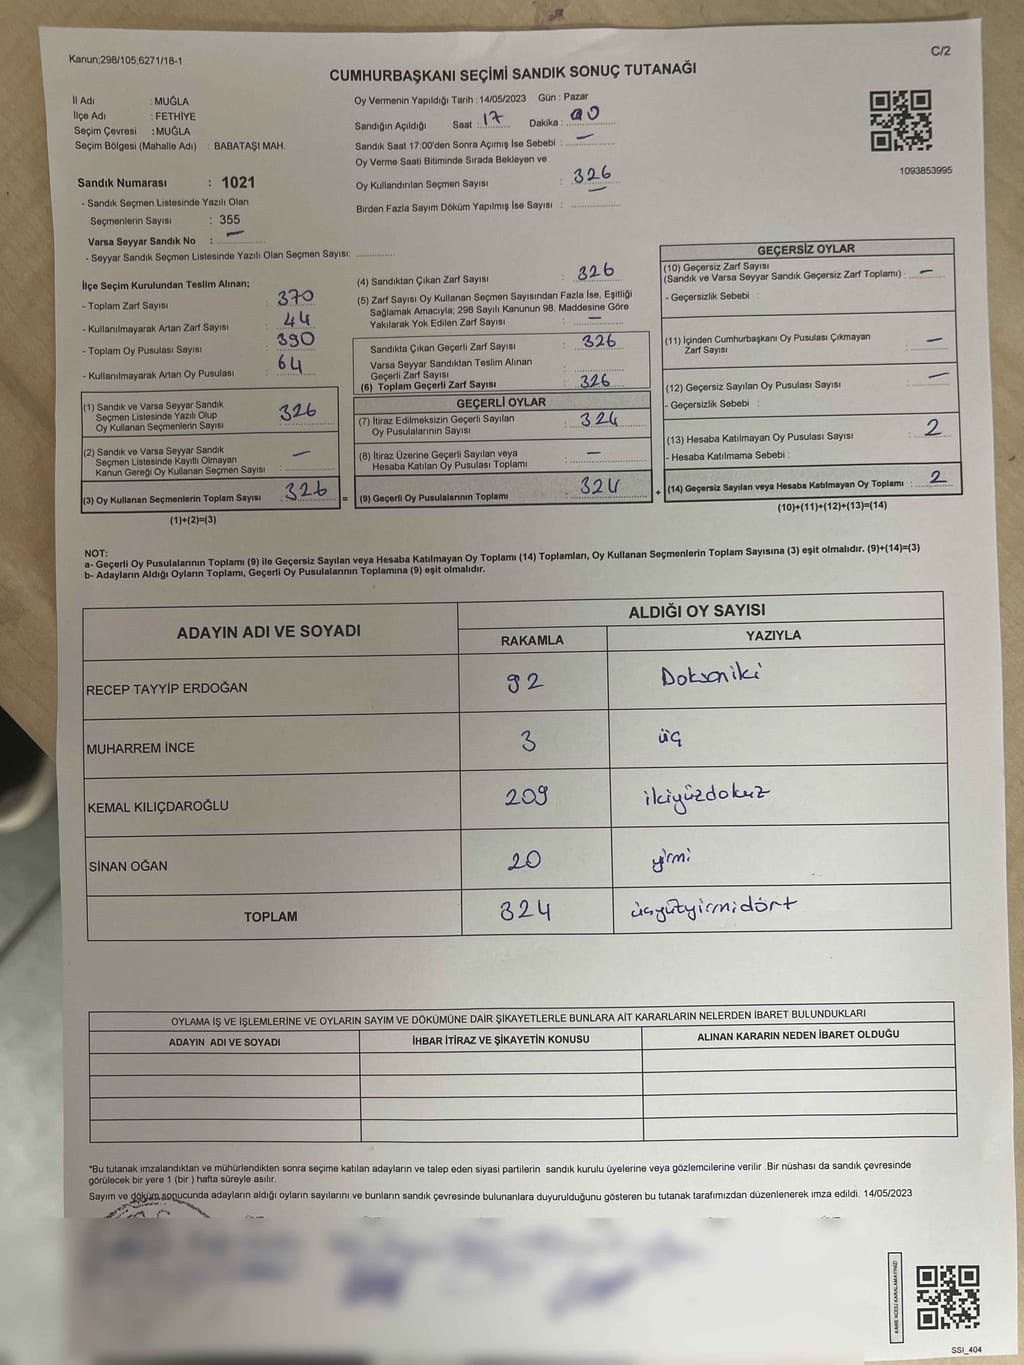 Kanun;298/105,6271/18-1
C/2
CUMHURBAŞKANI SEÇİMİ SANDIK SONUÇ TUTANAĞI
İl Adı : MUĞLA
İlçe Adı : FETHİYE
Seçim Çevresi : MUĞLA
Seçim Bölgesi (Mahalle Adı) : BABATAŞI MAH.
Sandık Numarası : 1021
- Sandık Seçmen Listesinde Yazılı Olan
Seçmenlerin Sayısı : 355
Varsa Seyyar Sandık No : —
- Seyyar Sandık Seçmen Listesinde Yazılı Olan Seçmen Sayısı:
Oy Vermenin Yapıldığı Tarih : 14/05/2023 Gün : Pazar
Sandığın Açıldığı Saat : 17 Dakika : 00
Sandık Saat 17:00'den Sonra Açımış İse Sebebi : —
Oy Verme Saati Bitiminde Sırada Bekleyen ve
Oy Kullandırılan Seçmen Sayısı : 326
Birden Fazla Sayım Döküm Yapılmış İse Sayısı :
1093853995
İlçe Seçim Kurulundan Teslim Alınan;
- Toplam Zarf Sayısı : 370
- Kullanılmayarak Artan Zarf Sayısı : 44
- Toplam Oy Pusulası Sayısı : 390
- Kullanılmayarak Artan Oy Pusulası : 64
(1) Sandık ve Varsa Seyyar Sandık
Seçmen Listesinde Yazılı Olup
Oy Kullanan Seçmenlerin Sayısı : 326
(2) Sandık ve Varsa Seyyar Sandık
Seçmen Listesinde Kayıtlı Olmayan
Kanun Gereği Oy Kullanan Seçmen Sayısı : —
(3) Oy Kullanan Seçmenlerin Toplam Sayısı : 326 =
(1)+(2)=(3)
(4) Sandıktan Çıkan Zarf Sayısı : 326
(5) Zarf Sayısı Oy Kullanan Seçmen Sayısından Fazla İse, Eşitliği
Sağlamak Amacıyla; 298 Sayılı Kanunun 98. Maddesine Göre
Yakılarak Yok Edilen Zarf Sayısı : —
Sandıkta Çıkan Geçerli Zarf Sayısı : 326
Varsa Seyyar Sandıktan Teslim Alınan
Geçerli Zarf Sayısı :
(6) Toplam Geçerli Zarf Sayısı : 326
GEÇERLİ OYLAR
(7) İtiraz Edilmeksizin Geçerli Sayılan
Oy Pusulalarının Sayısı : 324
(8) İtiraz Üzerine Geçerli Sayılan veya
Hesaba Katılan Oy Pusulası Toplamı : —
(9) Geçerli Oy Pusulalarının Toplamı : 324 +
GEÇERSİZ OYLAR
(10) Geçersiz Zarf Sayısı
(Sandık ve Varsa Seyyar Sandık Geçersiz Zarf Toplamı) : —
- Geçersizlik Sebebi :
(11) İçinden Cumhurbaşkanı Oy Pusulası Çıkmayan
Zarf Sayısı : —
(12) Geçersiz Sayılan Oy Pusulası Sayısı : —
- Geçersizlik Sebebi :
(13) Hesaba Katılmayan Oy Pusulası Sayısı : 2
- Hesaba Katılmama Sebebi :
(14) Geçersiz Sayılan veya Hesaba Katılmayan Oy Toplamı : 2
(10)+(11)+(12)+(13)=(14)
NOT:
a- Geçerli Oy Pusulalarının Toplamı (9) ile Geçersiz Sayılan veya Hesaba Katılmayan Oy Toplamı (14) Toplamları, Oy Kullanan Seçmenlerin Toplam Sayısına (3) eşit olmalıdır. (9)+(14)=(3)
b- Adayların Aldığı Oyların Toplamı, Geçerli Oy Pusulalarının Toplamına (9) eşit olmalıdır.
ADAYIN ADI VE SOYADI
ALDIĞI OY SAYISI
RAKAMLA YAZIYLA
RECEP TAYYİP ERDOĞAN 92 Doksaniki
MUHARREM İNCE 3 üç
KEMAL KILIÇDAROĞLU 209 ikiyüzdokuz
SİNAN OĞAN 20 yirmi
TOPLAM 324 üçyüzyirmidört
OYLAMA İŞ VE İŞLEMLERİNE VE OYLARIN SAYIM VE DÖKÜMÜNE DAİR ŞİKAYETLERLE BUNLARA AİT KARARLARIN NELERDEN İBARET BULUNDUKLARI
ADAYIN ADI VE SOYADI İHBAR İTİRAZ VE ŞİKAYETİN KONUSU ALINAN KARARIN NEDEN İBARET OLDUĞU
*Bu tutanak imzalandıktan ve mühürlendikten sonra seçime katılan adayların ve talep eden siyasi partilerin sandık kurulu üyelerine veya gözlemcilerine verilir .Bir nüshası da sandık çevresinde
görülecek bir yere 1 (bir ) hafta süreyle asılır.
Sayım ve döküm sonucunda adayların aldığı oyların sayılarını ve bunların sandık çevresinde bulunanlara duyurulduğunu gösteren bu tutanak tarafımızdan düzenlenerek imza edildi. 14/05/2023
KARE KODU KARALAMAYINIZ!
SSI_404